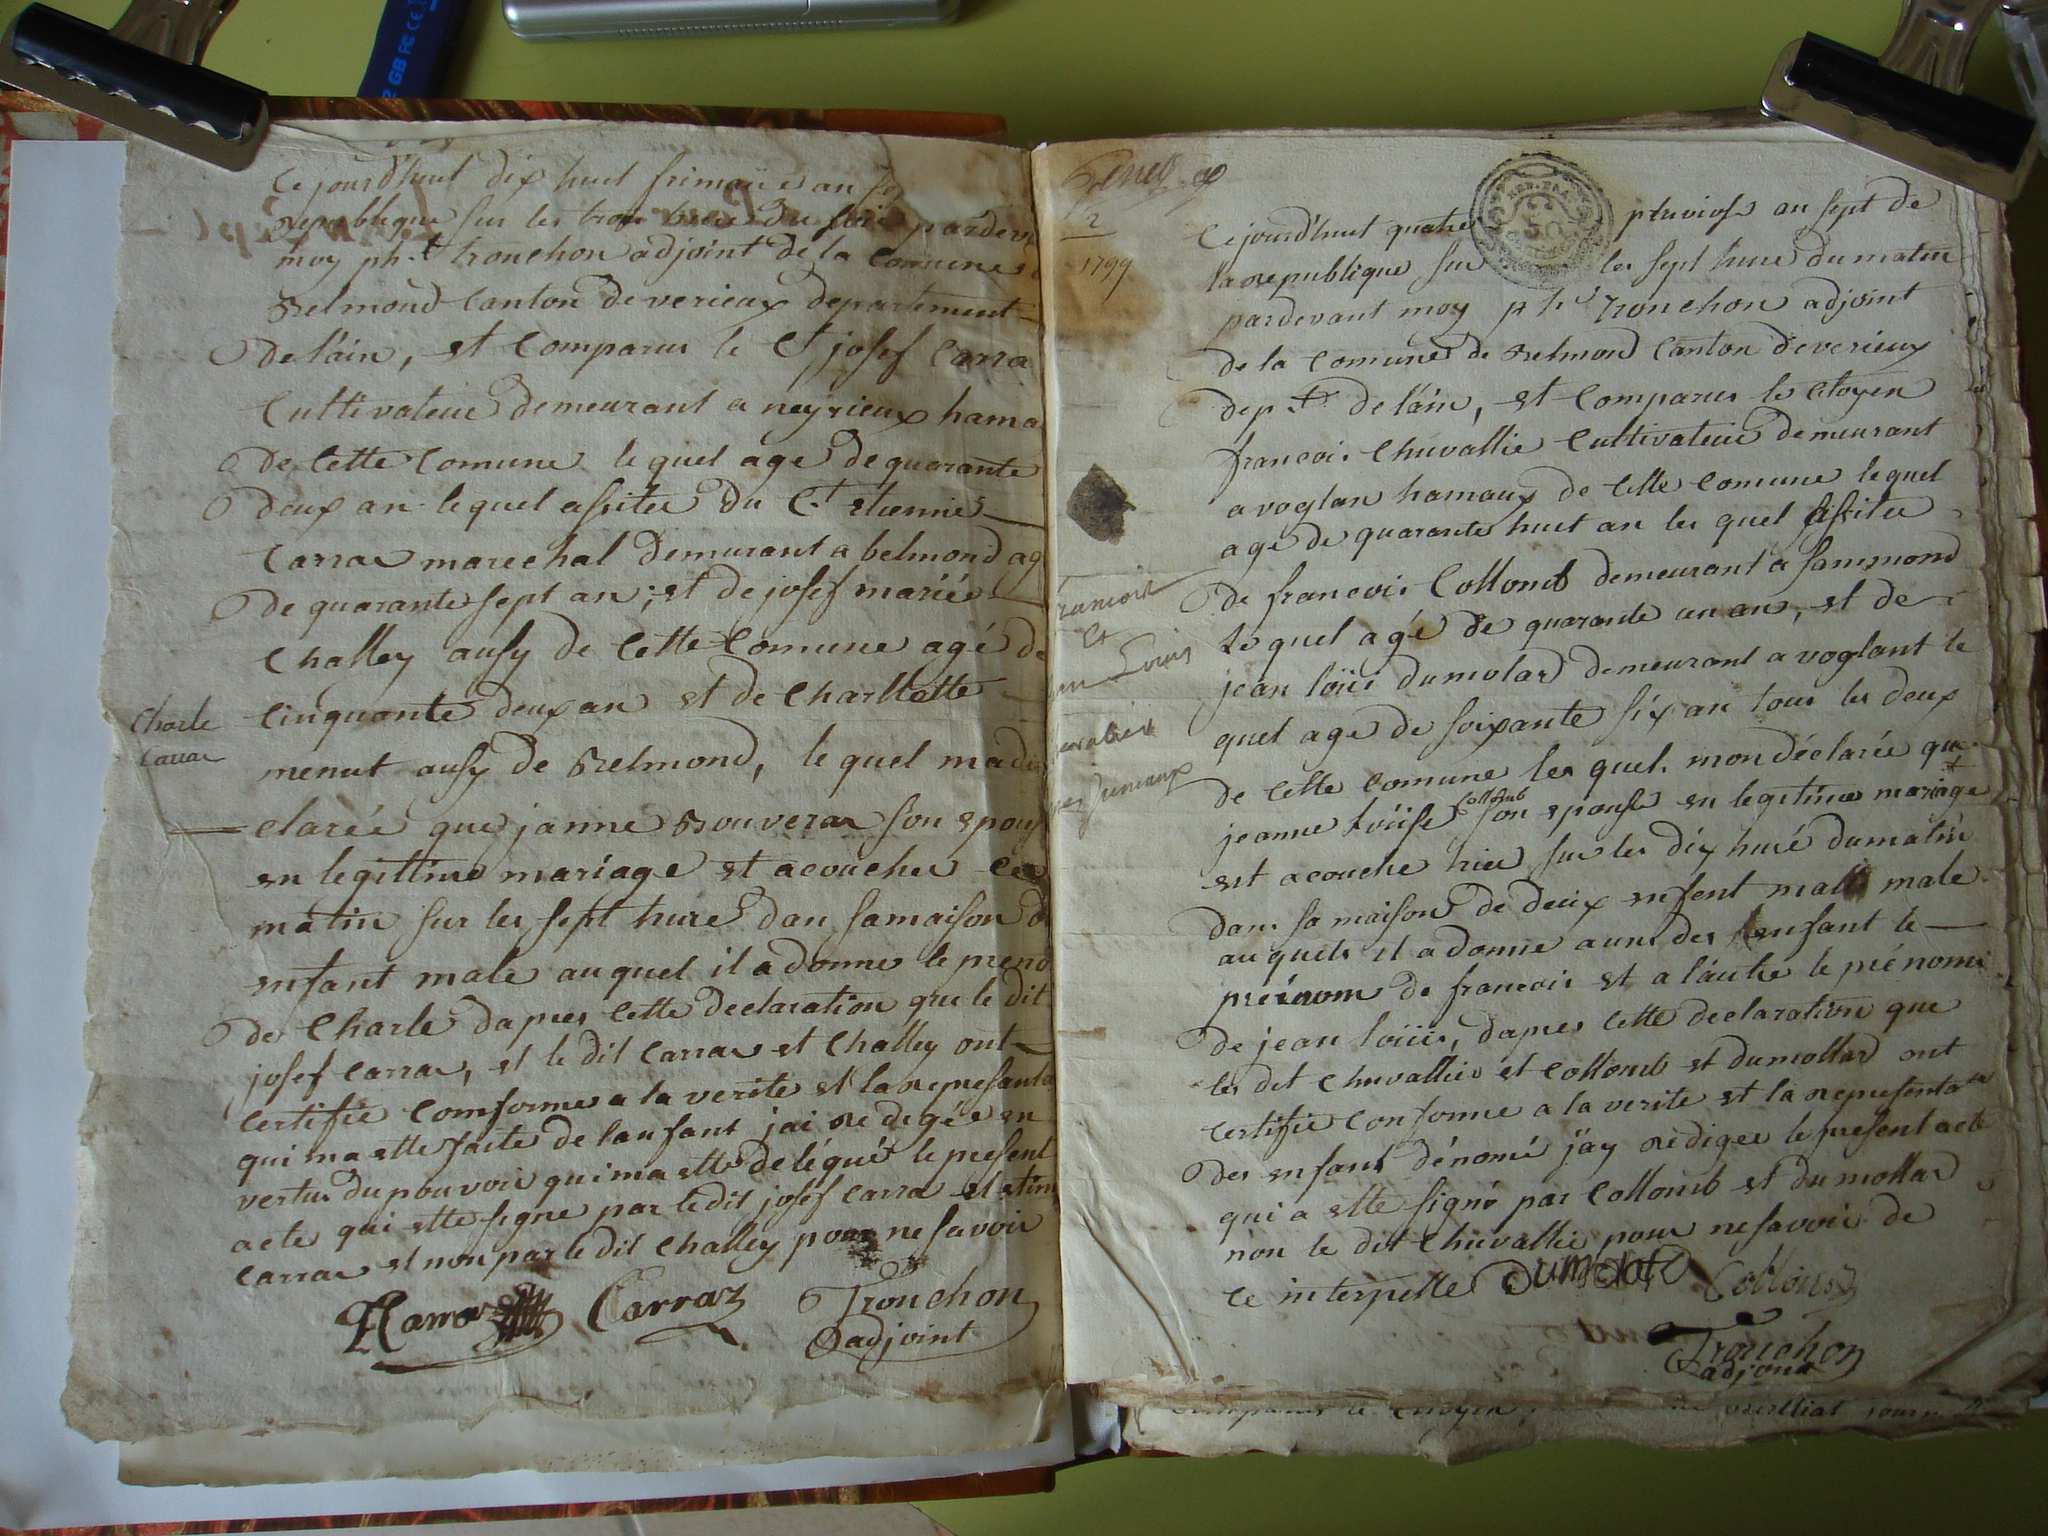 2 GB FC CE
Cejourd'huit dix huit frimaire an
republique sur les trois heures du soir pardev
moy ph.t tronchon adjoint de la comune d
Belmond canton de verieux departement
de l'ain, et comparus le C.t josef Carra
Cultivateur demeurant a neyrieux hama
de cette comune le quel age de quarante
deux an lequel assiter du C.t etienne
Carraz marechal demurant a belmond ag
de quarante sept an, et de josef marie
Challey ausy de cette comune agé de
Charle
Carraz
cinquante deux an et de Charllette
menut ausy de Belmond, le quel ma dé
clarée que janne Bouveraz son epous
en legittime mariage et acoucher ce
matin sur les sept hure dan samaison d
enfant male auquel il a donne le preno
de Charle dapres cette declaration que le dit
josef carraz, et le dit carraz et Challey ont
certifie comforme a la verite et la represanta
qui ma ette faite de lanfant jai redegée en
vertus du pouvoir qui ma ette delégué le present
acte qui ette signe par ledit josef carra et etien
carraz et non par le dit Challey pour ne savoir
Carraz Carraz Tronchon
adjoint
2
1799
francoit
et
Louis
jumaux
Cejourd'huit quatre pluviose an sept de
la republique sur les sept hure du matin
pardevant moy ph.t Tronchon adjoint
de la comune de Belmond Canton de verieux
dep.t de l'ain, et comparus le citoyen
francois Chuvallie Cultivateur demeurant
a voglan hamaux de cette comune lequel
age de quarante huit an les quel assiter
de francois Collomb demeurant a sammond
le quel agé de quarante un an, et de
jean loüis dumolard demeurant a voglant le
quel age de soixante six an tous les deux
de cette comune les quel mon déclarée que
jeanne Loüise Collomb son epouse en legitime mariage
est acouche hier sur les dix huré du matin
dans sa maison de deux enfent male
auquels il a donne a un des enfant le
prénom de francois et a l'autre le prénoms
de jean loüis, dapres cette declaration que
les dit Chuvallier et Collomb et dumollard ont
certifie conforme a la verite et la representa
des enfant dénomé j'ay rédigee le present acte
qui a ette signé par Collomb et dumollar
non le dit Chuvallie pour ne savoir de
ce interpelle Dumolard Collomb
Tronchon
adjoint
citoyen